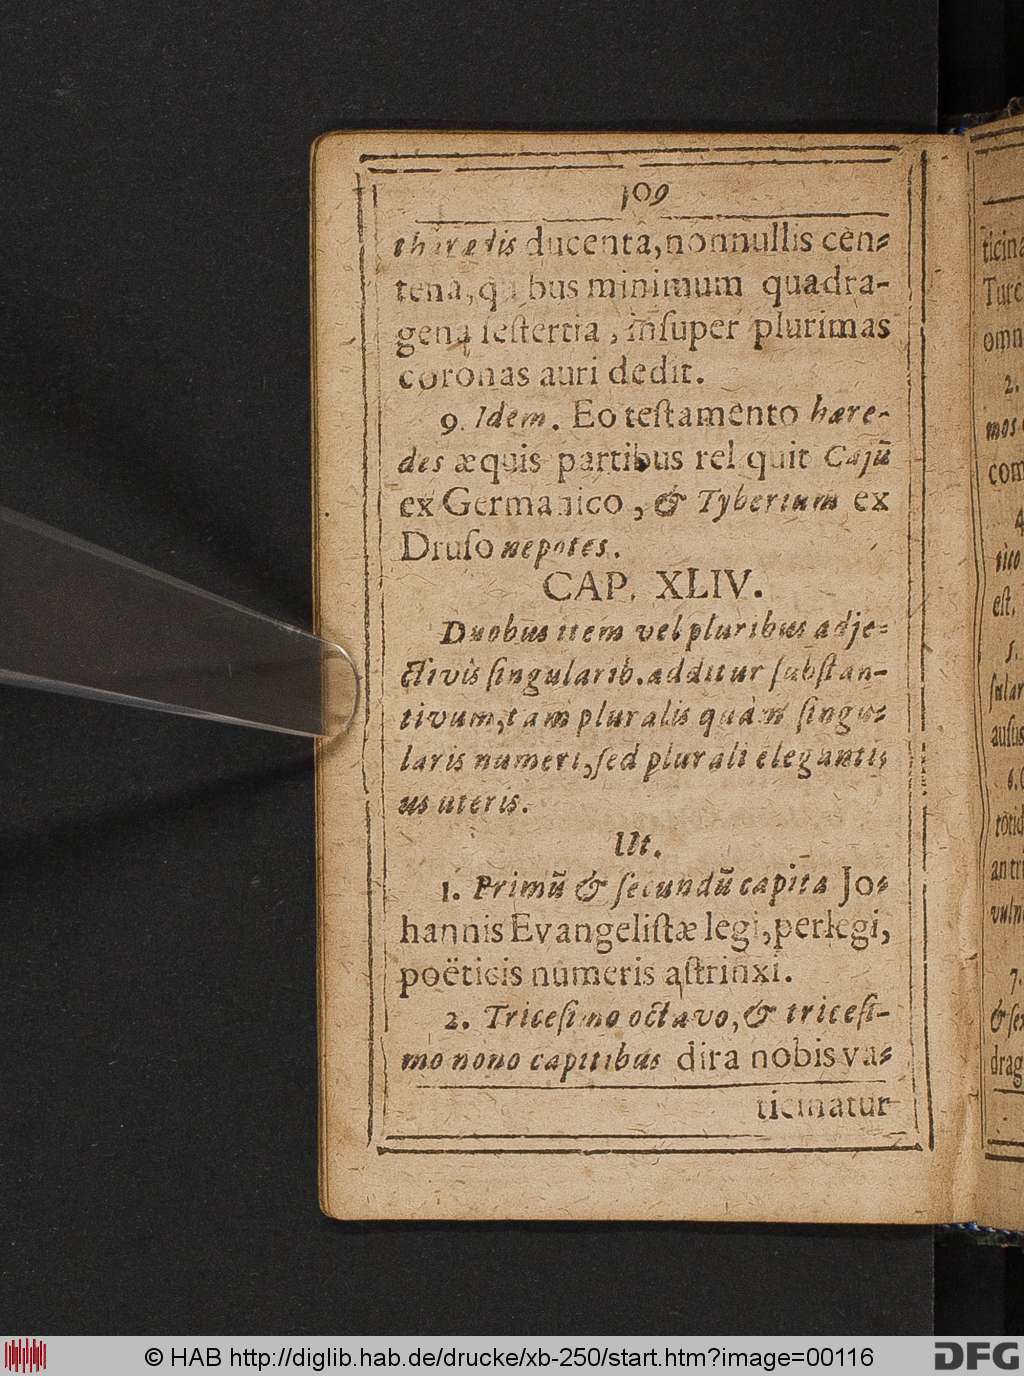 109
tharœdis ducenta, nonnullis cen⸗
tena, quibus minimum quadra-
gena ſeſtertia, inſuper plurimas
coronas auri dedit.
9. Idem. Eo teſtamento hære-
des æquis partibus reliquit Cajū
ex Germanico, & Tyberium ex
Druſo nepotes.
CAP. XLIV.
Duobus item vel pluribus adje⸗
ctivis ſingularib. additur ſubſtan-
tivum, tam pluralis quàm ſingu⸗
laris numeri, ſed plurali eleganti⸗
us uteris.
Ut.
1. Primū & ſecundū capita Jo⸗
hannis Evangeliſtæ legi, perlegi,
poëticis numeris aſtrinxi.
2. Triceſimo octavo, & triceſi-
mo nono capitibus dira nobis va⸗
ticinatur
ticina
Turc
omn
2.
mos
com
4
tico
eſt.
5.
ſular
auſus
6.
rotid
antri
vuln
7.
& ſe
drag
© HAB http://diglib.hab.de/drucke/xb-250/start.htm?image=00116
DFG